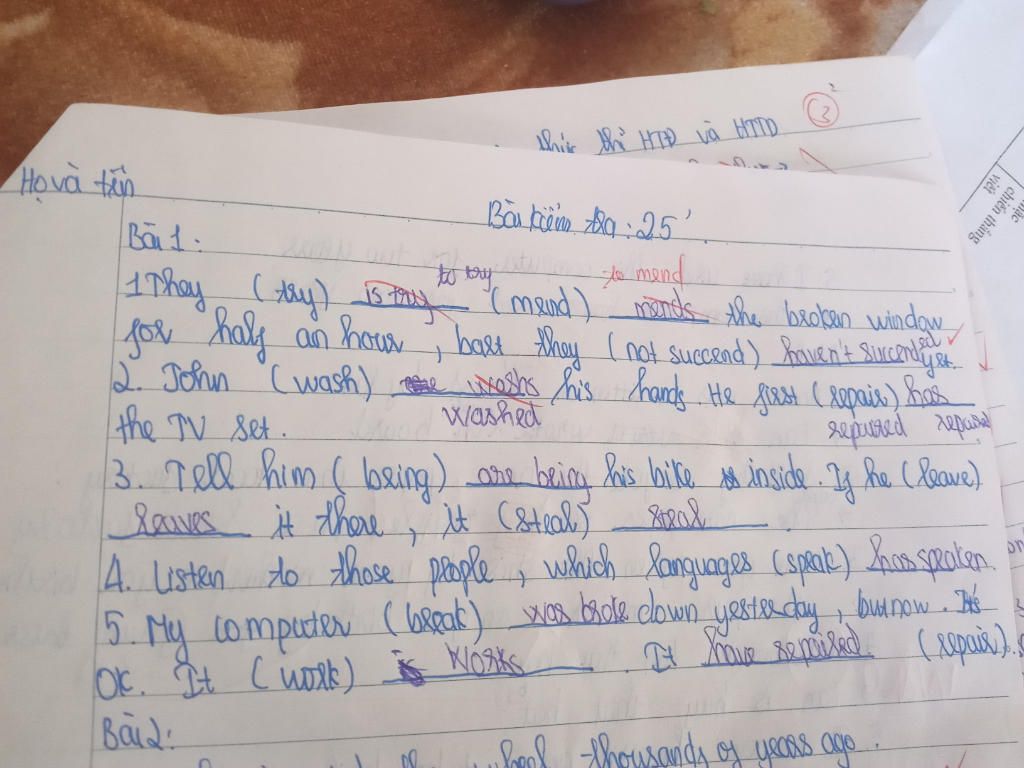 thức thì HTĐ và HTTD
3
2
Họ và tên
Bài kiểm tra : 25'
Bài 1 :
to try to mend
1 They (try) is try (mend) mends the broken window
for half an hour , bart they (not succend) haven't succended yet.
2. John (wash) washs his hands He first (repair) has
washed repaired repaired
the TV set.
3. Tell him ( being) are being his bike inside. If he (leave)
leaves it there , it (steal) steal .
4. Listen to those people , which languages (speak) has spoken.
5. My computer (break) was broke down yesterday , but now . It's
OK. It (work) is works . It have repaired (repair).
Bài 2 :
thousands of years ago .
chiến thắng
viết